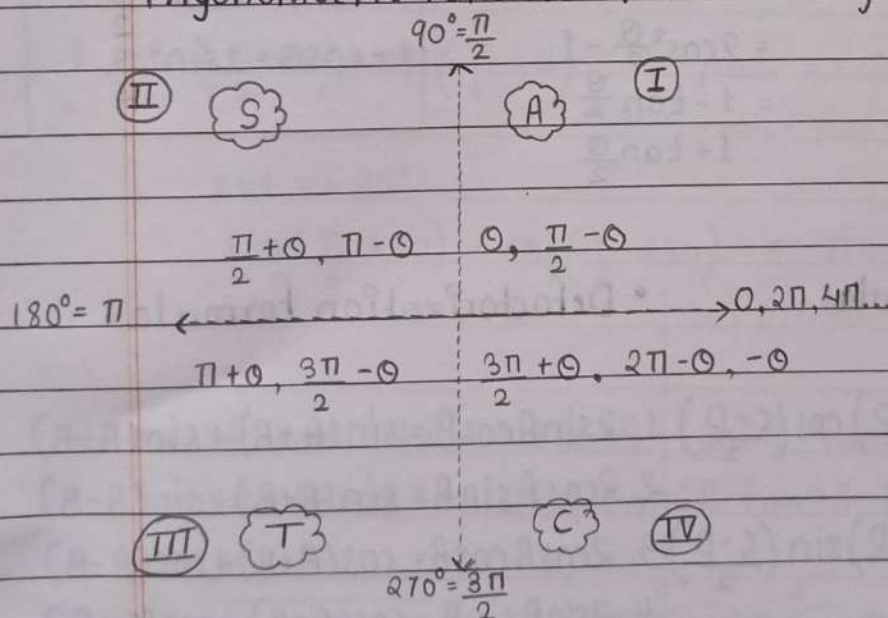 Trigonometric
90° = π/2
II S A I
π/2 + θ, π - θ θ, π/2 - θ
180° = π 0, 2π, 4π...
π + θ, 3π/2 - θ 3π/2 + θ, 2π - θ, -θ
III T C IV
270° = 3π/2